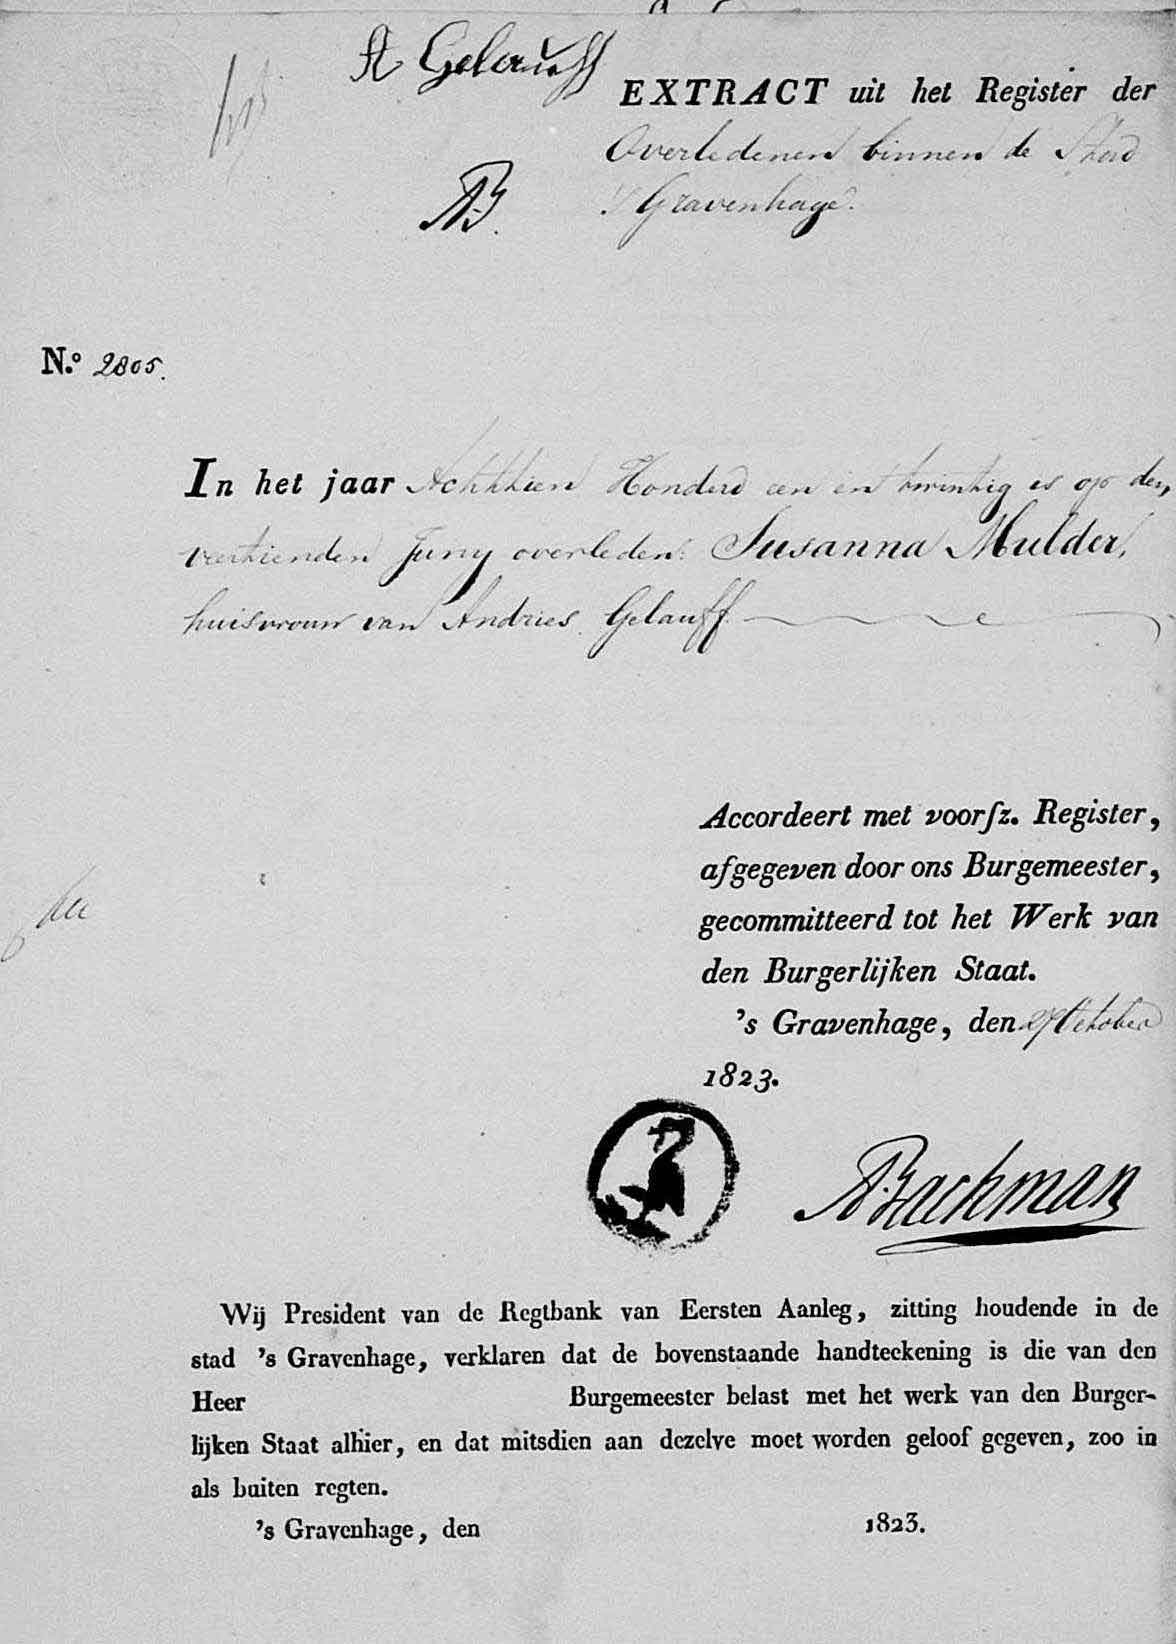 A Gelauff
EXTRACT uit het Register der
Overledenen binnen de Stad
's Gravenhage.
AB.
N.º 2805.
In het jaar Achttien Honderd een en twintig is op den
veertienden Juny overleden: Susanna Mulder,
huisvrouw van Andries Gelauff
Accordeert met voorſz. Register,
afgegeven door ons Burgemeester,
gecommitteerd tot het Werk van
den Burgerlijken Staat.
's Gravenhage, den 27 October
1823.
ABachman
Wij President van de Regtbank van Eersten Aanleg, zitting houdende in de
stad 's Gravenhage, verklaren dat de bovenstaande handteekening is die van den
Heer Burgemeester belast met het werk van den Burger-
lijken Staat alhier, en dat mitsdien aan dezelve moet worden geloof gegeven, zoo in
als buiten regten.
's Gravenhage, den 1823.